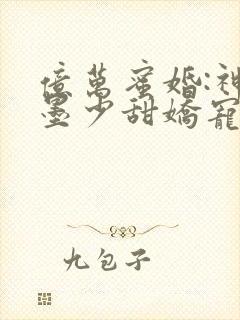 億萬蜜婚:神
墨少甜嬌寵
九包子